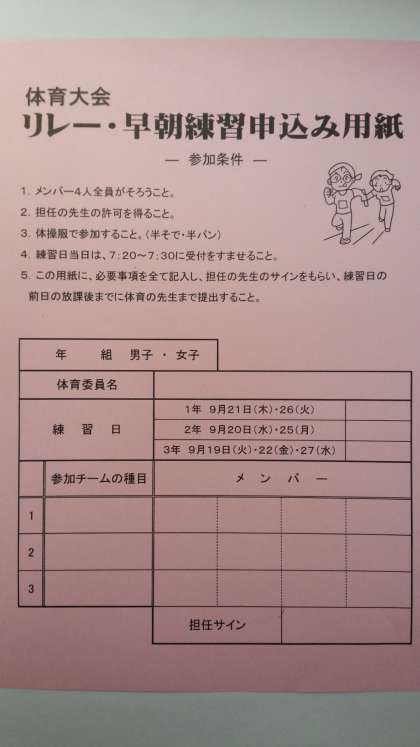 体育大会
リレー・早朝練習申込み用紙
― 参加条件 ―
1. メンバー4人全員がそろうこと。
2. 担任の先生の許可を得ること。
3. 体操服で参加すること。（半そで・半パン）
4. 練習日当日は、7：20～7：30に受付をすませること。
5. この用紙に、必要事項を全て記入し、担任の先生のサインをもらい、練習日の
前日の放課後までに体育の先生まで提出すること。
年 組 男子 ・ 女子
体育委員名
練 習 日
1年 9月21日（木）・26（火）
2年 9月20日（水）・25（月）
3年 9月19日（火）・22（金）・27（水）
参加チームの種目 メ ン バ ー
1
2
3
担任サイン